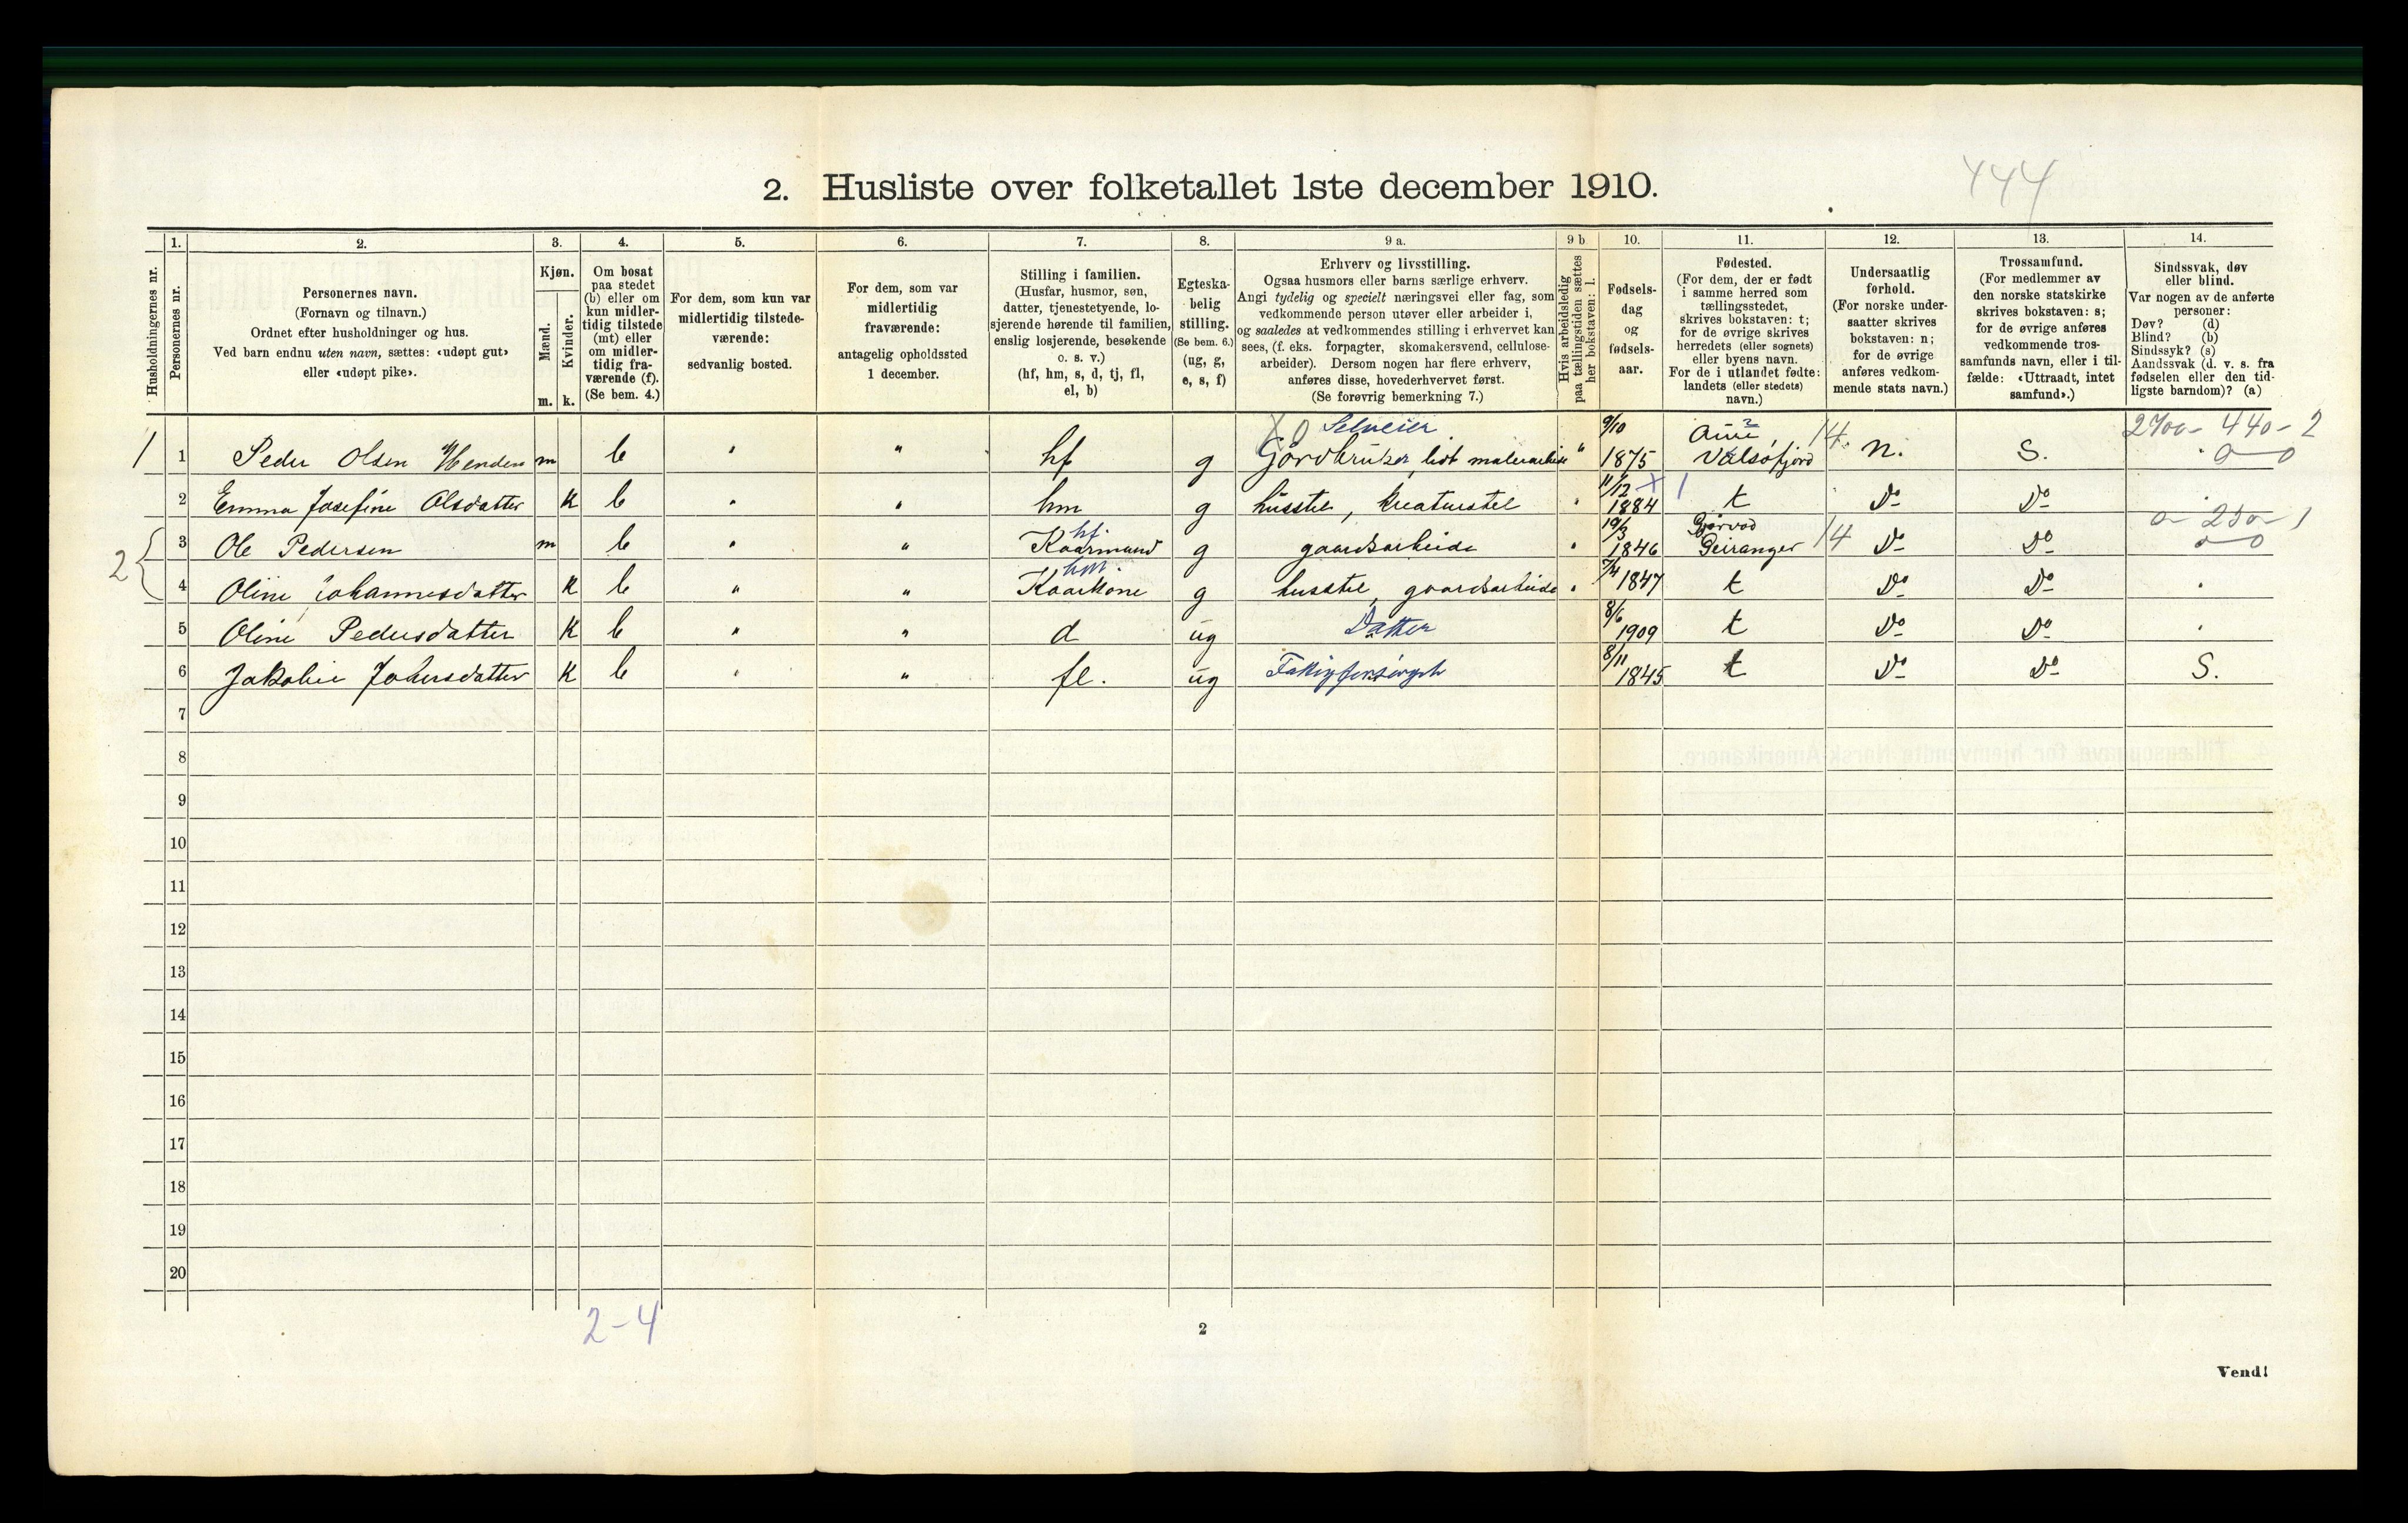 444
2. Husliste over folketallet 1ste december 1910.
Husholdningernes nr.
1.
Personernes nr.
2.
Personernes navn.
(Fornavn og tilnavn.)
Ordnet efter husholdninger og hus.
Ved barn endnu uten navn, sættes: «udøpt gut»
eller «udøpt pike».
3.
Kjøn.
Mænd.
Kvinder.
m. k.
4.
Om bosat
paa stedet
(b) eller om
kun midler-
tidig tilstede
(mt) eller
om midler-
tidig fra-
værende (f).
(Se bem. 4.)
5.
For dem, som kun var
midlertidig tilstede-
værende:
sedvanlig bosted.
6.
For dem, som var
midlertidig
fraværende:
antagelig opholdssted
1 december.
7.
Stilling i familien.
(Husfar, husmor, søn,
datter, tjenestetyende, lo-
sjerende hørende til familien,
enslig losjerende, besøkende
o. s. v.)
(hf, hm, s, d, tj, fl,
el, b)
8.
Egteska-
belig
stilling.
(Se bem. 6.)
(ug, g,
e, s, f)
9 a.
Erhverv og livsstilling.
Ogsaa husmors eller barns særlige erhverv.
Angi tydelig og specielt næringsvei eller fag, som
vedkommende person utøver eller arbeider i,
og saaledes at vedkommendes stilling i erhvervet kan
sees, (f. eks. forpagter, skomakersvend, cellulose-
arbeider). Dersom nogen har flere erhverv,
anføres disse, hovederhvervet først.
(Se forøvrig bemerkning 7.)
9 b
Hvis arbeidsledig
paa tællingstiden sættes
her bokstaven: l.
10.
Fødsels-
dag
og
fødsels-
aar.
11.
Fødested.
(For dem, der er født
i samme herred som
tællingsstedet,
skrives bokstaven: t;
for de øvrige skrives
herredets (eller sognets)
eller byens navn.
For de i utlandet fødte:
landets (eller stedets)
navn.)
12.
Undersaatlig
forhold.
(For norske under-
saatter skrives
bokstaven: n;
for de øvrige
anføres vedkom-
mende stats navn.)
13.
Trossamfund.
(For medlemmer av
den norske statskirke
skrives bokstaven: s;
for de øvrige anføres
vedkommende tros-
samfunds navn, eller i til-
fælde: «Uttraadt, intet
samfund».)
14.
Sindssvak, døv
eller blind.
Var nogen av de anførte
personer:
Døv? (d)
Blind? (b)
Sindssyk? (s)
Aandssvak (d. v. s. fra
fødselen eller den tid-
ligste barndom)? (a)
X0 Selveier 9/10 Aure 2700 - 440 - 2
1 1 Peder Olsen Henden m b " " hf g Gårdbruker, lidt malerarbeide " 1875 Valsøfjord 14. n. S. 0 0
11/12 X 1
2 Emma Josefine Olsdatter K b " " hm g husstel, kreaturstel " 1884 t Do Do "
hf 19/3 0 - 250 - 1
2 3 Ole Pedersen m b " " Kaarmand g gaardsarbeide " 1846 Geiranger 14 Do Do 0 0
hm 7/4
4 Oline Johannesdatter K b " " Kaarkone g husstel, gaardsarbeide " 1847 t Do Do "
8/6
5 Oline Pedersdatter K b " " d ug Datter 1909 t Do Do "
8/11
6 Jakobie Johnsdatter K b " " fl. ug 1845 t Do Do S.
7
8
9
10
11
12
13
14
15
16
17
18
19
20
2-4
2
Vend!